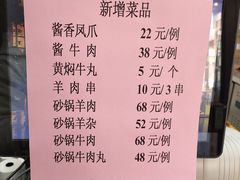 新增菜品
酱香凤爪 22 元/例
酱牛肉 38 元/例
黄焖牛丸 5 元/个
羊肉串 10 元/3 串
砂锅羊肉 68 元/例
砂锅羊杂 52 元/例
砂锅牛肉 68 元/例
砂锅牛肉丸 48 元/例